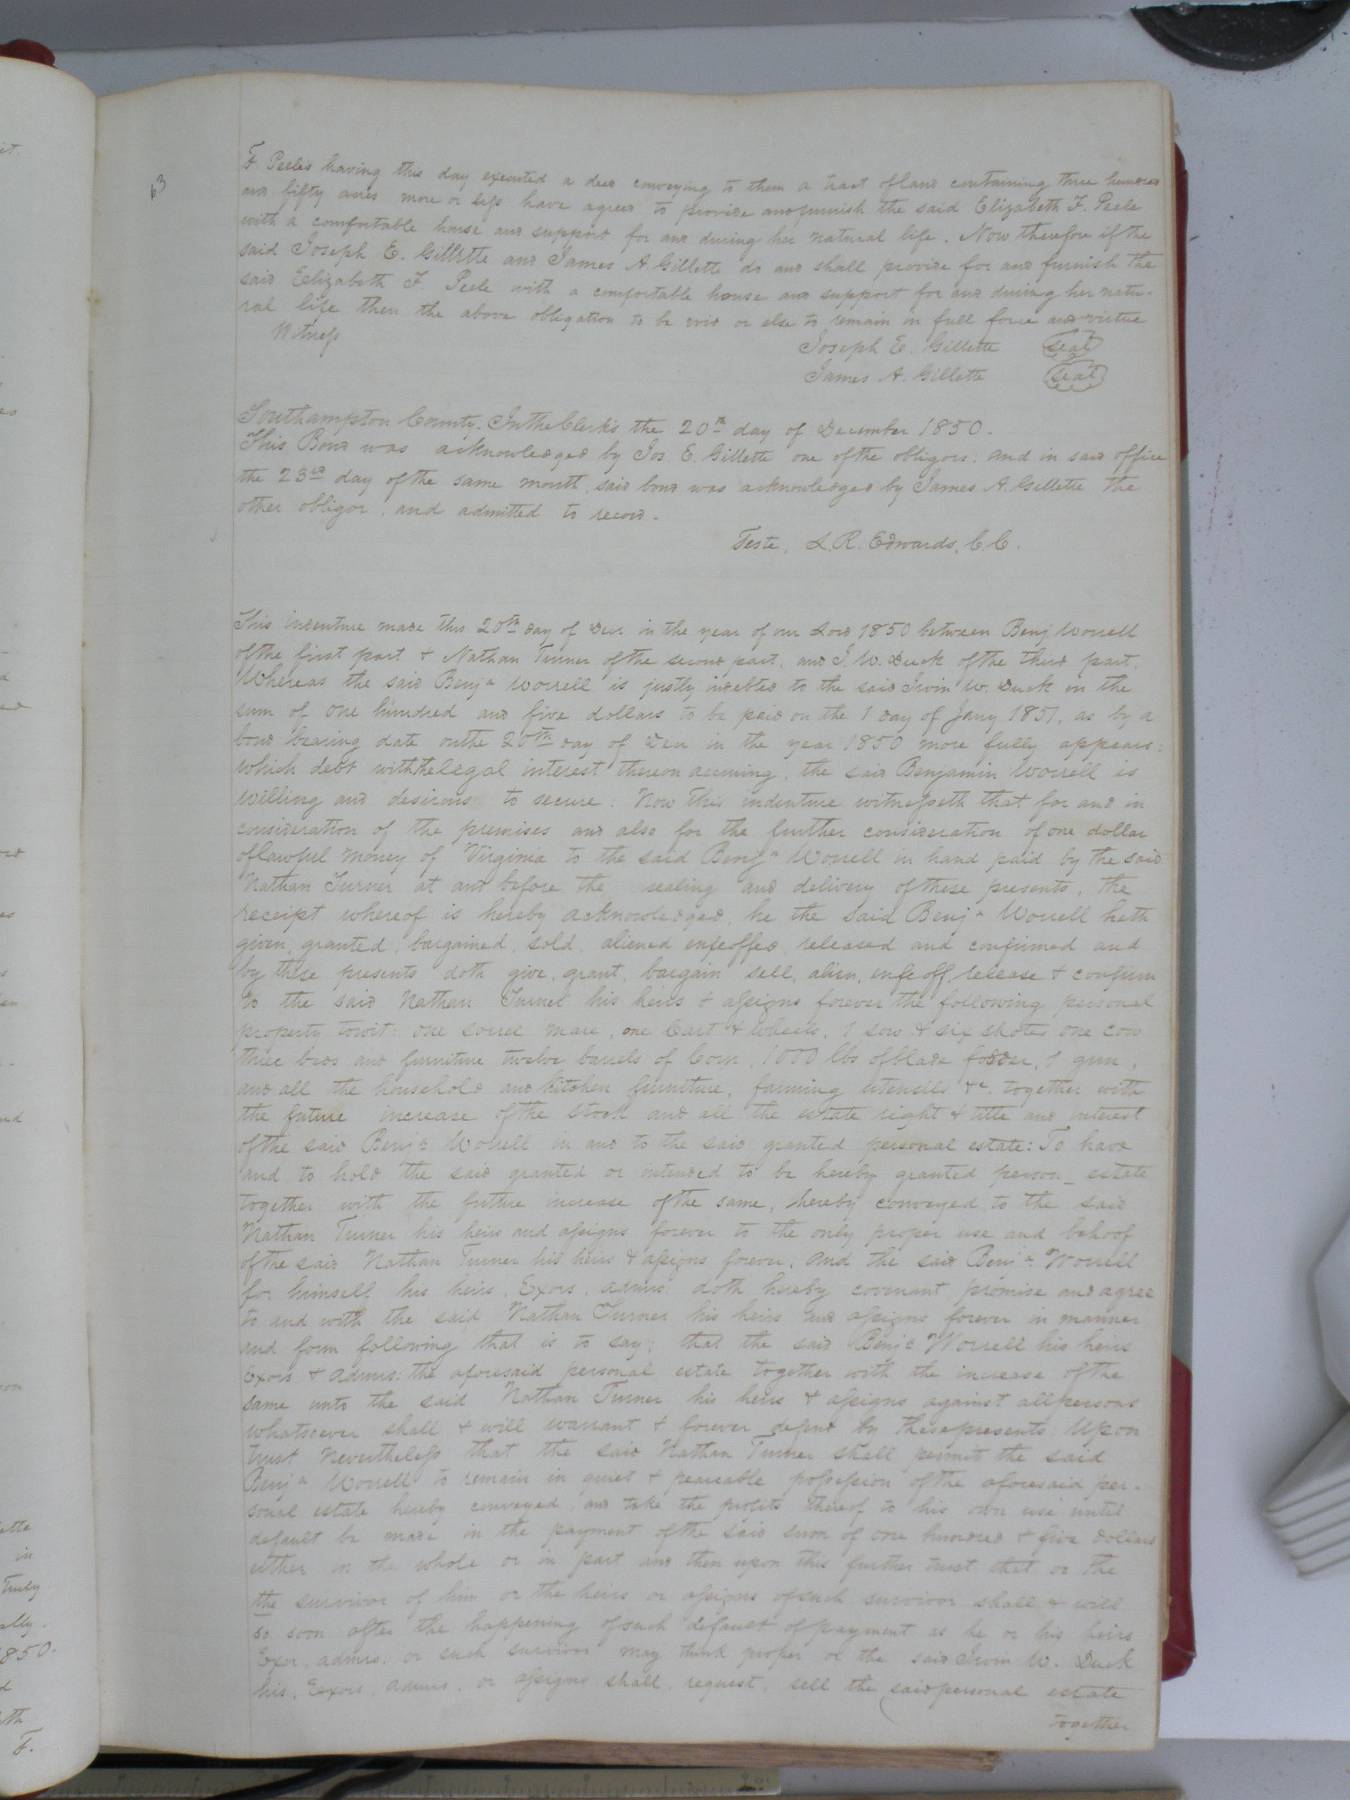 63
F. Peele having this day executed a deed conveying to them a tract of land containing three hundred
and fifty acres more or less have agreed to provide and furnish the said Elizabeth F. Peele
with a comfortable house and support for and during her natural life. Now therefore if the
said Joseph E. Gillette and James A Gillette do and shall provide for and furnish the
said Elizabeth F. Peele with a comfortable house and support for and during her natu-
ral life then the above obligation to be void or else to remain in full force and virtue
Witness
Joseph E. Gillette seal
James A. Gillette seal
Southampton County. In the Clerk's the 20th day of December 1850.
This Bond was acknowledged by Jos. E. Gillette one of the obligors. and in said office
the 23rd day of the same month said bond was acknowledged by James A. Gillette the
other obligor. and admitted to record.
Teste, L. R. Edwards, C.C.
This indenture made this 20th day of Decr in the year of our Lord 1850 between Benj Worrell
of the first part & Nathan Turner of the second part, and I. W. Duck of the third part.
Whereas the said Benja Worrell is justly indebted to the said Irvin W. Duck in the
sum of one hundred and five dollars to be paid on the 1 day of Jany 1851, as by a
bond bearing date on the 20th day of Decr in the year 1850 more fully appears:
which debt with the legal interest thereon accruing, the said Benjamin Worrell is
willing and desirous to secure: Now This indenture witnesseth that for and in
consideration of the premises and also for the further consideration of one dollar
of lawful money of Virginia to the said Benja Worrell in hand paid by the said
Nathan Turner at and before the sealing and delivery of these presents, the
receipt whereof is hereby acknowledged, he the said Benja Worrell hath
given, granted, bargained, sold, aliened enfeoffed, released and confirmed and
by these presents doth give, grant, bargain sell, alien, enfeoff, release & confirm
to the said Nathan Turner his heirs & assigns forever the following personal
property towit: one sorrel mare, one Cart & Wheels, 1 sow & six shotes one cow
three beds and furniture twelve barrels of Corn, 1000 lbs of blade fodder, 1 gun,
and all the household and kitchen furniture, farming utensils &c. together with
the future increase of the stock and all the estate right & title and interest
of the said Benja Worrell in and to the said granted personal estate: To have
and to hold the said granted or intended to be hereby granted person_ estate
together with the future increase of the same, hereby conveyed to the said
Nathan Turner his heirs and assigns forever to the only proper use and behoof
of the said Nathan Turner his heirs & assigns forever. And the said Benja. Worrell
for himself his heirs, Exors. admrs. doth hereby covenant, promise and agree
to and with the said Nathan Turner his heirs and assigns forever in manner
and form following that is to say; that the said Benja Worrell his heirs
Exors & admrs: the aforesaid personal estate together with the increase of the
same unto the said Nathan Turner his heirs & assigns against all persons
whatsoever shall & will warrant & forever defend by these presents: Upon
trust nevertheless that the said Nathan Turner shall permit the said
Benja Worrell to remain in quiet & peaceable possession of the aforesaid per-
sonal estate hereby conveyed, and take the profits thereof to his own use until
default be made in the payment of the said sum of one hundred & five dollars
either in the whole or in part and then upon this further trust that or the
the survivor of him or the heirs or assigns of such survivor shall & will
so soon after the happening of such default of payment as he or his heirs
Exor. admrs. or such survivor may think proper or the said Irvin W. Duck
his, Exors, admrs. or assigns shall, request, sell the said personal estate
together